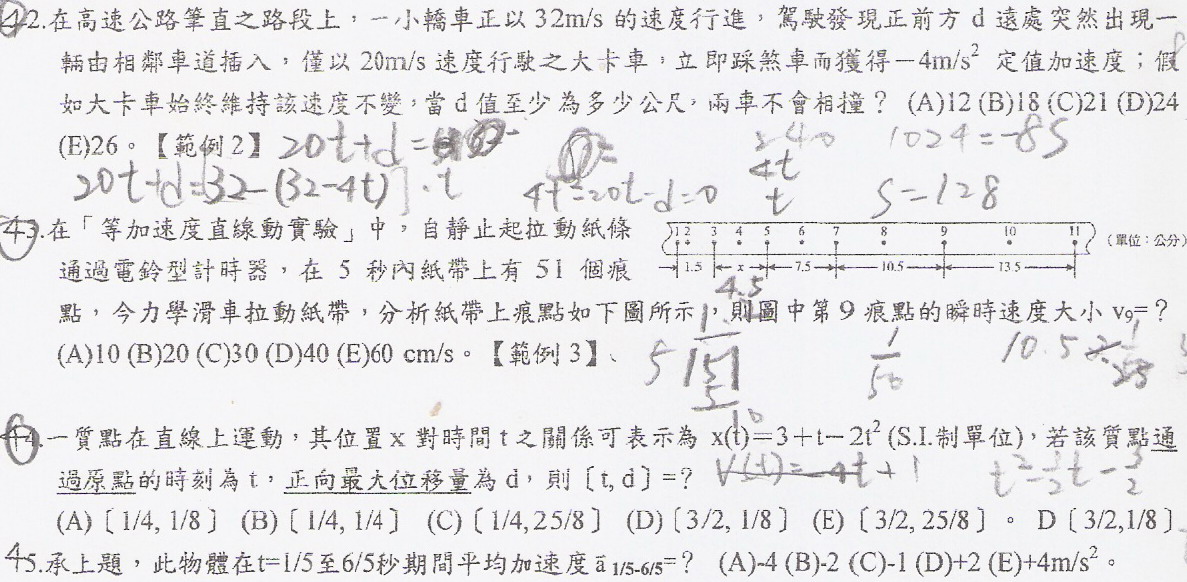 42.在高速公路筆直之路段上，一小轎車正以32m/s 的速度行進，駕駛發現正前方 d 遠處突然出現一
輛由相鄰車道插入，僅以 20m/s 速度行駛之大卡車，立即踩煞車而獲得－4m/s² 定值加速度；假
如大卡車始終維持該速度不變，當 d 值至少為多少公尺，兩車不會相撞？ (A)12 (B)18 (C)21 (D)24
(E)26。【範例 2】 20t+d=
240 1024=-8S
20t+d=[32-(32-4t)]·t 4t²=20t-d=0 4t t S=128
43.在「等加速度直線動實驗」中，自靜止起拉動紙條
1 2 3 4 5 6 7 8 9 10 11 (單位：公分)
1.5 x 7.5 10.5 13.5
通過電鈴型計時器，在 5 秒內紙帶上有 51 個痕
4.5
點，今力學滑車拉動紙帶，分析紙帶上痕點如下圖所示，則圖中第 9 痕點的瞬時速度大小 v₉=？
(A)10 (B)20 (C)30 (D)40 (E)60 cm/s。【範例 3】、
5 51 5 10 1/50 10.5
44.一質點在直線上運動，其位置 x 對時間 t 之關係可表示為 x(t)＝3＋t－2t² (S.I.制單位)，若該質點通
過原點的時刻為 t，正向最大位移量為 d，則〔t, d〕=？ V(t)=-4t+1 t²-1/2t-3/2
(A)〔1/4, 1/8〕 (B)〔1/4, 1/4〕 (C)〔1/4,25/8〕 (D)〔3/2, 1/8〕 (E)〔3/2, 25/8〕。 D〔3/2,1/8〕
45.承上題，此物體在t=1/5至6/5秒期間平均加速度ā 1/5-6/5=？ (A)-4 (B)-2 (C)-1 (D)+2 (E)+4m/s²。